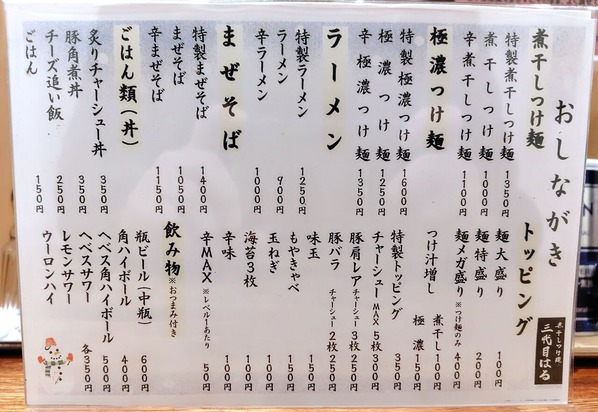 おしながき
煮干しつけ麺
特製煮干しつけ麺 1350円
煮干しつけ麺 1000円
辛煮干しつけ麺 1100円
極濃つけ麺
特製極濃つけ麺 1600円
極濃つけ麺 1250円
辛極濃つけ麺 1350円
ラーメン
特製ラーメン 1250円
ラーメン 900円
辛ラーメン 1000円
まぜそば
特製まぜそば 1400円
まぜそば 1050円
辛まぜそば 1150円
ごはん類(丼)
炙りチャーシュー丼 350円
豚角煮丼 350円
チーズ追い飯 250円
ごはん 150円
トッピング
麺大盛り 100円
麺特盛り 200円
麺メガ盛り ※つけ麺のみ 400円
つけ汁増し 煮干し 100円
極濃 150円
特製トッピング 350円
チャーシューMAX 5枚 300円
豚肩レアチャーシュー 3枚 250円
豚バラチャーシュー 2枚 200円
味玉 150円
もやきゃべ 100円
玉ねぎ 100円
海苔3枚 100円
辛味 100円
辛MAX ※レベル1あたり 50円
飲み物 ※おつまみ付き
瓶ビール(中瓶) 600円
角ハイボール 400円
ヘベス角ハイボール 500円
ヘベスサワー
レモンサワー
ウーロンハイ
各350円
煮干しつけ麺
三代目はる